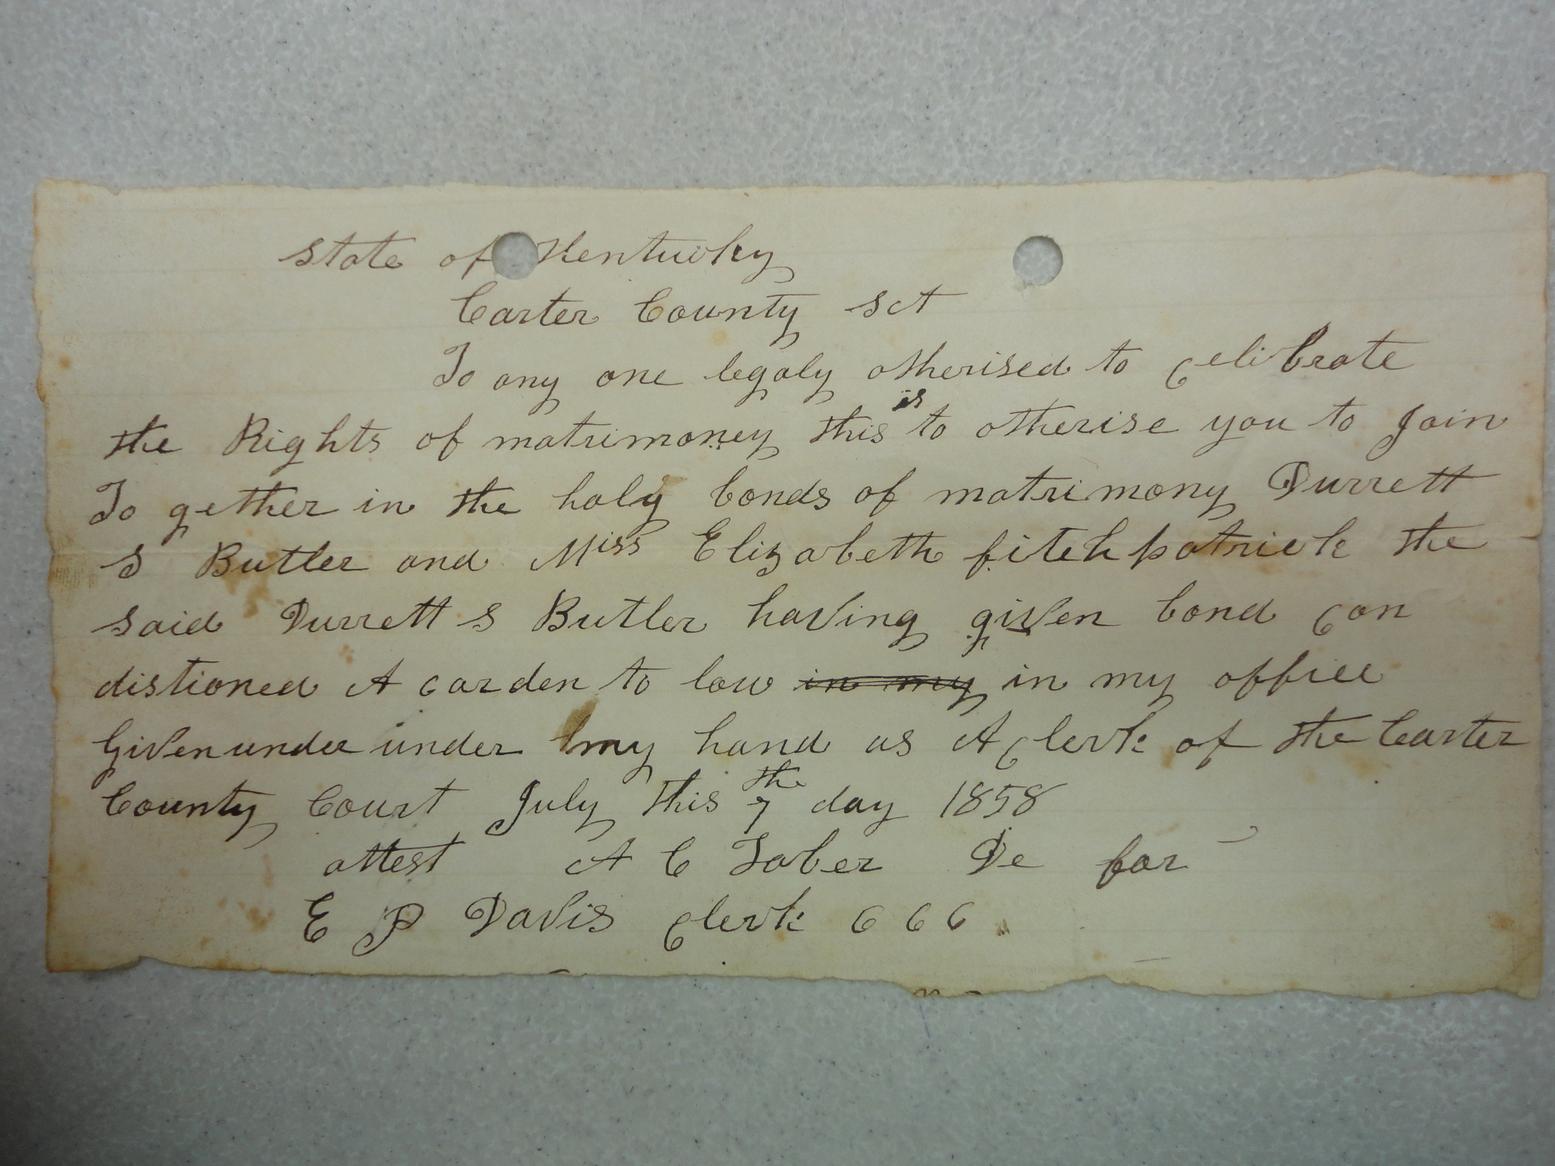 State of Kentucky
Carter County Sct
To any one legaly otherised to celibrate
the Rights of matrimoney this is to otherise you to Join
To gether in the holy bonds of matrimony Durrett
S Butler and Miss Elizabeth fitchpatrick the
said Durrett S Butler having given bond con
distioned A carden to law in my in my office
Given under under my hand as A clerk of the Carter
County Court July this 7th day 1858
attest A C Tober De for
E P Davis clerk C C C